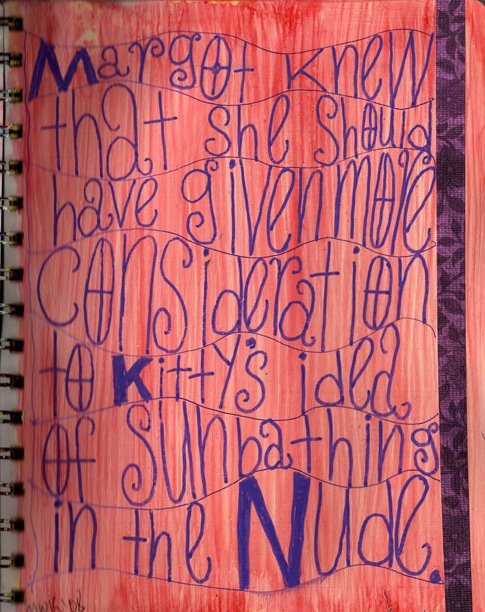 Margot knew
that she should
have given more
consideration
to Kitty's idea
of sunbathing
in the Nude.